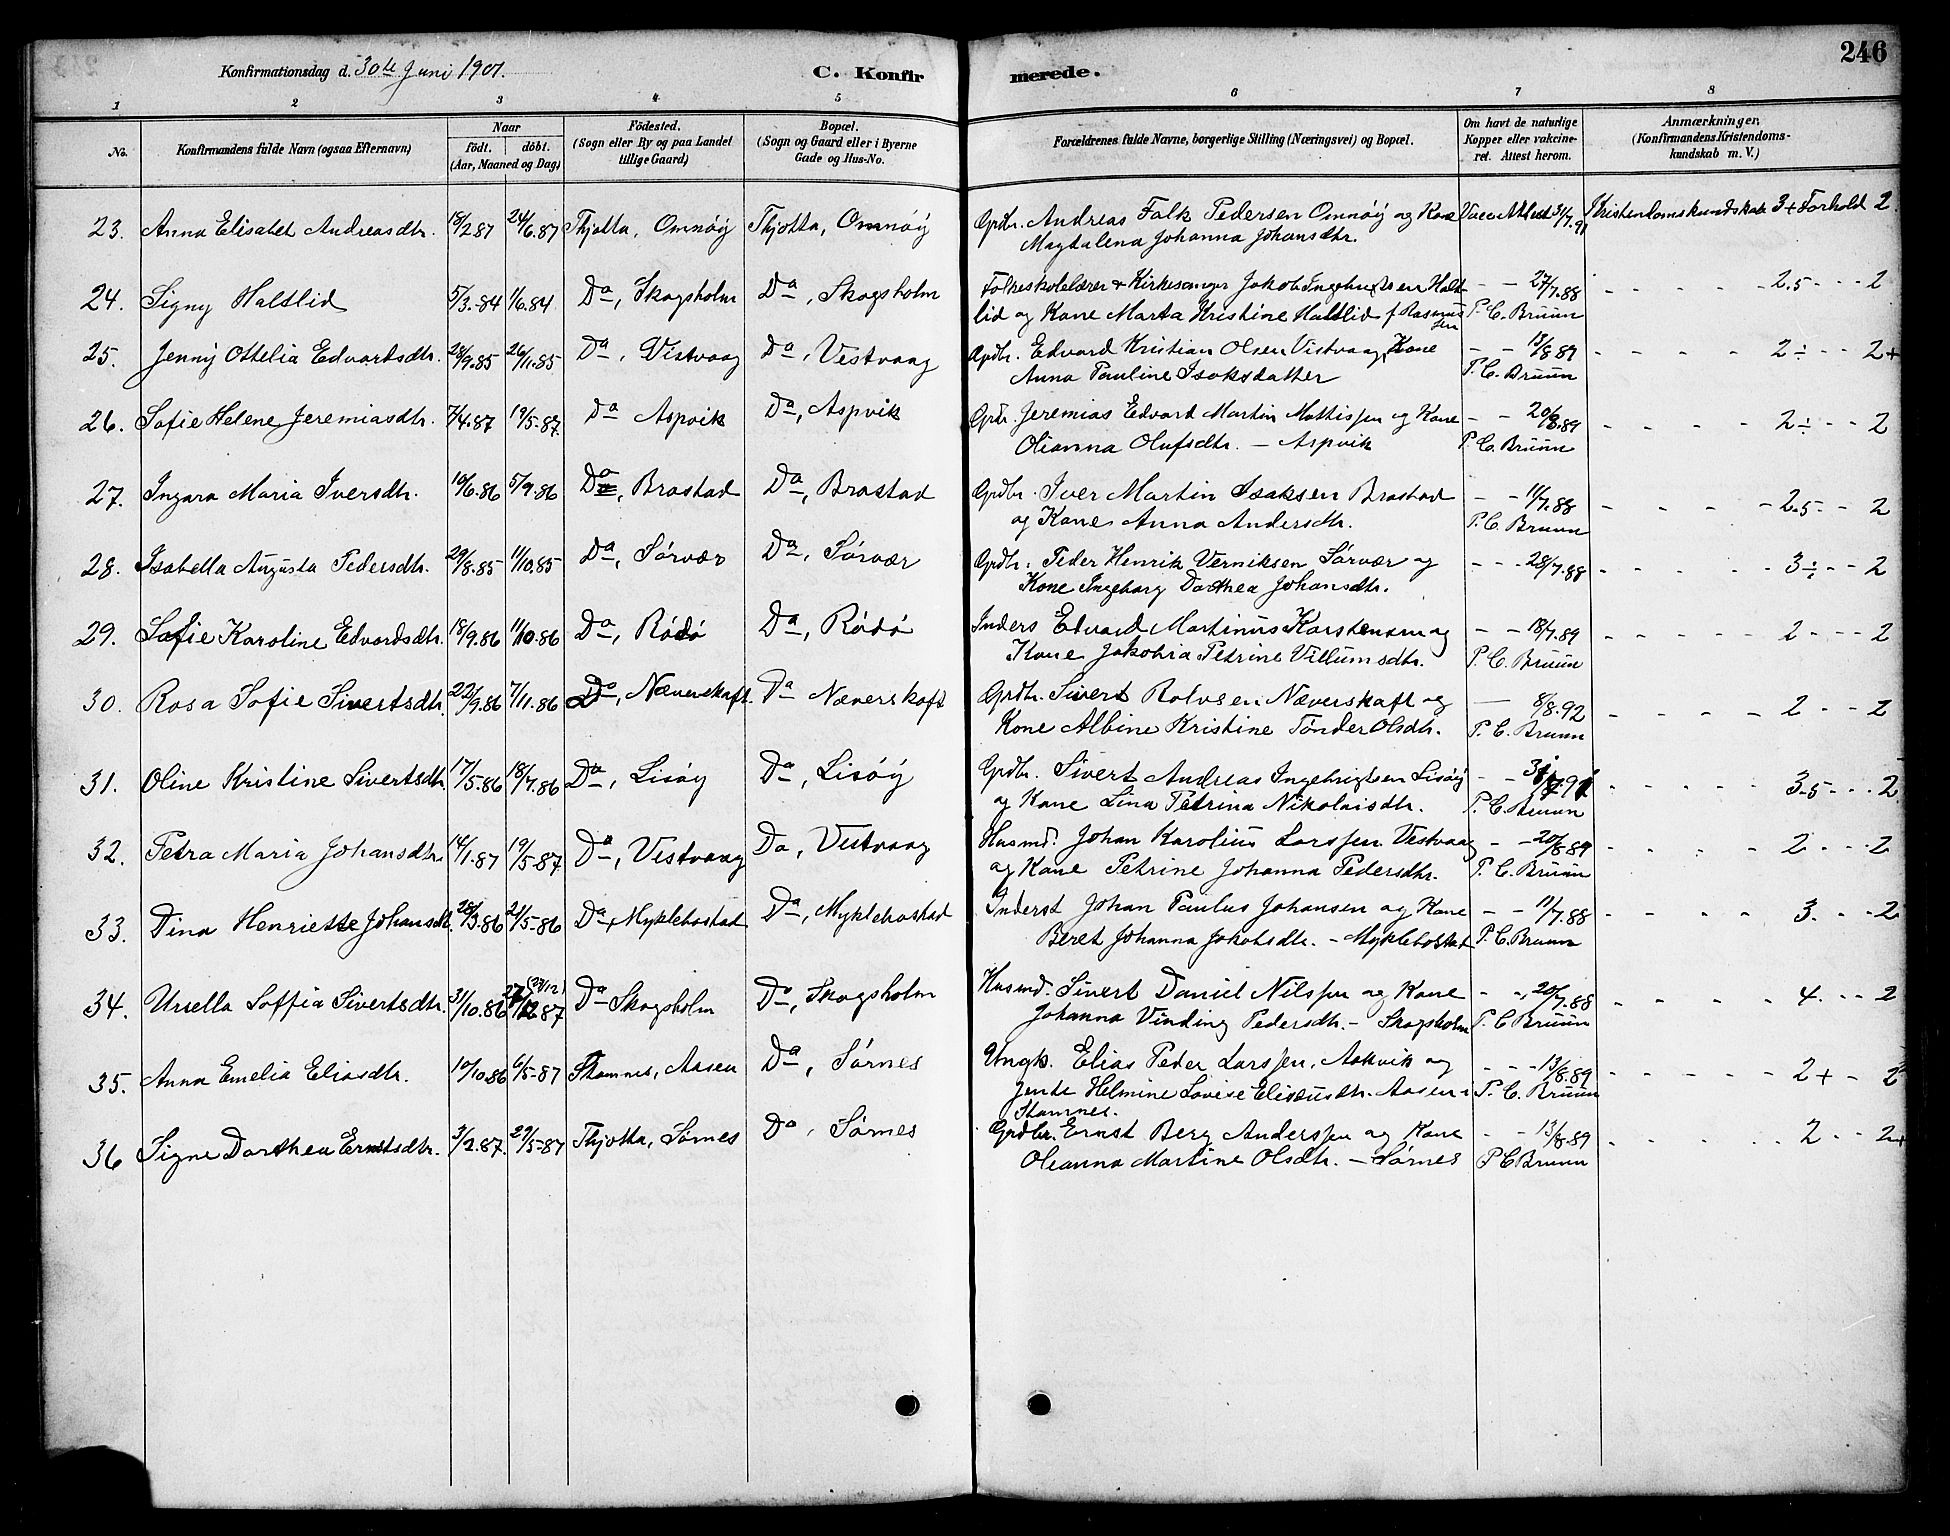 246
Konfirmationsdag d. 30te Juni 1901.
C. Konfir merede.
1 2 3 4 5 6 7 8
No.
Konfirmandens fulde Navn (ogsaa Efternavn)
Naar
födt. döbt.
(Aar, Maaned og Dag)
Födested.
(Sogn eller By og paa Landet
tillige Gaard)
Bopæl.
(Sogn og Gaard eller i Byerne
Gade og Hus-No.
Forældrenes fulde Navne, borgerlige Stilling (Næringsvei) og Bopæl.
Om havt de naturlige
Kopper eller vakcine-
ret. Attest herom.
Anmærkninger.
(Konfirmandens Kristendoms-
kundskab m. V.)
23. Anna Elisabet Andreasdtr. 18/2 87 24/6.87 Thjotta, Omnöiy Thjotta, Omnöiy Grdbr. Andreas Falk Pedersen Omnöiy og Kone Vacc. Attest 31/7.91 Kristendomskundskab 3+ Forhold 2
Magdalena Johanna Johansdtr.
24. Signy Haltlid 5/3.-84 1/6.84 Da, Skogsholm Da, Skogsholm Folkeskolelærer & Kirkesanger Jakob Ingebrigtsen Halt- - - 27/7.88 - - - - 2.5 - - - 2
lid og Kone Marta Kristine Haltlid f. Rasmussen P. C. Bruun
25. Jenny Othelia Edvartsdtr. 28/9.85 26/11.85 Da, Vistvaag Da, Vestvaag Grdbr. Edvard Kristian Olsen Vistvaag, Kone - - 13/8 89 - - - - 2 ÷ - - 2+
Anna Pauline Isaksdatter P. C. Bruun
26. Sofie Helene Jeremiasdtr. 7/4.87 19/5-87. Da Aspvik Da, Aspvik Grdbr. Jeremias Edvard Martin Mattissen og Kone - - 20/8.89 - - - - 2 ÷ - - 2
Olianna Olufsdtr. - Aspvik P. C. Bruun
27. Ingara Maria Iversdtr. 10/6.86 5/9.86 Da, Brastad Da, Brastad Grdbr. Iver Martin Isaksen Brastad - - 11/7.88 - - - - 2.5 - - 2
og Kone Anna Andersdtr. P. C. Bruun
28. Isabella Augusta Pedersdtr. 29/8.85 11/10.85 Da, Sörvær Da, Sörvær Grdbr. Peder Henrik Verniksen Sörvær og - - - 28/7.88 - - - - 3 ÷ - - 2
Kone Ingeborg Dorthea Johansdtr.
29. Sofie Karoline Edvardsdtr. 18/9.86 11/10.86 Da, Rödö Da, Rödö Inders Edvard Martinus Karstensen og - - 18/7.89 - - - - 2 - - - 2
Kone Jakobia Petrine Villumsdtr. P. C. Bruun
30. Rosa Sofie Sivertsdtr. 22/9.86 7/11.86 Da, Næverskaft. Da Næverskaft Grdbr. Sivert Rolvsen Næverskaft og — 8/8.92 - - - - 2 - - - 2
Kone Albine Kristine Tönder Olsdtr. P. C. Bruun
31. Oline Kristine Sivertsdtr. 17/5.86 18/7.86 Da, Lisöiy Da, Lisöiy Grdbr. Sivert Andreas Ingebrigtsen Lisöiy - - 31/7.91 - - - - 3.5 - - - 2
og Kone Lina Petrina Nikolaisdtr. P. C. Bruun
32. Petra Maria Johansdtr. 14/1.87 19/5-87 Da, Vestvaag Da, Vestvaag Husmd. Johan Karolius Larssen Vestvaag - - 20/8.89 - - - - 2 - - - 2
og Kone Petrine Johanna Pedersdtr. P. C. Bruun
33. Dina Henriette Johansdtr. 28/3.86 24/5-86 Da, Myklebostad Da, Myklebostad Inderst Johan Paulus Johansen og Kone - - 11/7.88 - - - - 3. - - 2
Beret Johanna Jakobsdtr. - Myklebostad P. C. Bruun
34. Ursella Soffia Sivertsdtr. 31/10.86 (27/12) Da Skogsholm Da, Skogsholm Husmd. Sivert Daniel Nilssen og Kone - -, 20/7.88 - - - - 4. - - 2
Johanna Vinding Pedersdtr. - Skogsholm P. C Bruun
35. Anna Emelia Eliasdtr. 10/10.86 6/5-87 Stamnes, Aasen Da, Sörnes Ungk. Elias Peder Larssen, Aakvik og - - - 13/8.89 - - - - 2 + - 2
Jente Helmine Lovise Eliseusdtr. Aasen i P. C. Bruun
Stamnes.
36 Signe Dorthea Ernstsdtr. 3/2.87. 29/5-87 Thjotta, Sörnes Da, Sörnes Grdbr. Ernst Berg Anderssen og Kone - - 13/8.89 - - - - 2 - - 2+
Oleanna Martine Olsdtr. - Sörnes P C Bruun